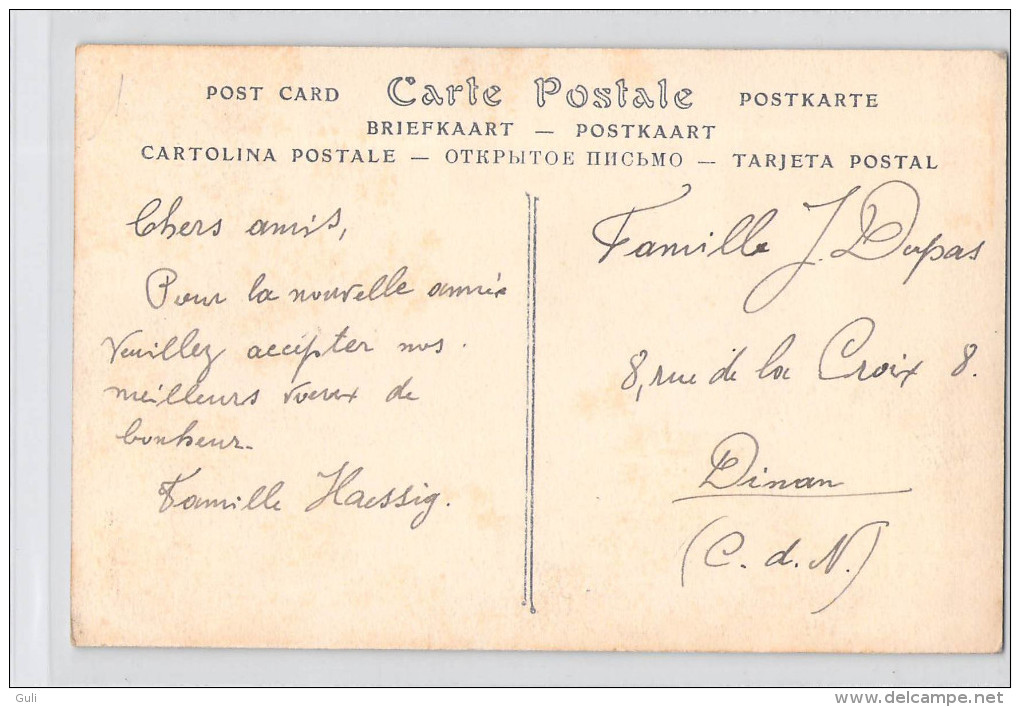 POST CARD Carte Postale POSTKARTE
BRIEFKAART — POSTKAART
CARTOLINA POSTALE — ОТКРЫТОЕ ПИСЬМО — TARJETA POSTAL
Chers amis,
Pour la nouvelle année
veuillez accepter nos
meilleurs voeux de
bonheur.
Famille Haessig.
Famille J. Dupas
8, rue de la Croix 8.
Dinan
(C. d. N.)
Guli
www.delcampe.net